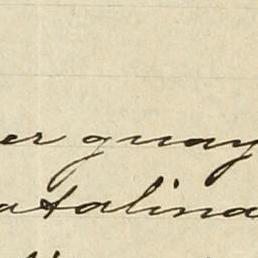 er quay
atalina